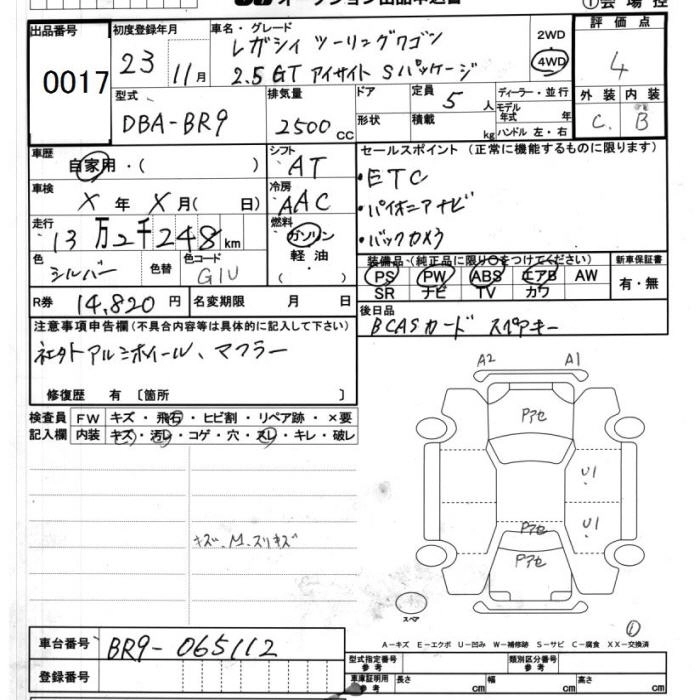 出品番号
0017
初度登録年月
23 11月
車名・グレード
レガシィ ツーリングワゴン
2.5GT アイサイト Sパッケージ
2WD
4WD
評価点
4
外装 内装
C. B
型式
DBA-BR9
排気量
2500 CC
ドア
形状
定員 5 人
積載 kg
ディーラー・並行
モデル年式 年
ハンドル 左・右
車歴
自家用・( )
シフト
AT
車検
X 年 X 月( 日)
冷房
AAC
走行
13万2千248km
燃料
ガソリン
軽油
色
シルバー
色替
色コード
G1U
R券 14,820 円
名変期限 月 日
セールスポイント(正常に機能するものに限ります)
・ETC
・パイオニアナビ
・バックカメラ
装備品・(純正品に限り○をつけてください)
PS PW ABS エアB AW
SR ナビ TV カワ
新車保証書
有・無
後日品
BCASカード スペアキー
注意事項申告欄(不具合内容等は具体的に記入して下さい)
社外アルミホイール、マフラー
修復歴 有 [箇所 ]
検査員 FW キズ・飛石・ヒビ割・リペア跡・×要
記入欄 内装 キズ・汚レ・コゲ・穴・スレ・キレ・破レ
キズ.M.スリキズ
A2 A1
Pアセ
U1
U1
Pアセ
Pアセ
スペア
A-キズ E-エクボ U-凹み W-補修跡 S-サビ C-腐食 XX-交換済
車台番号 BR9-065112
登録番号
型式指定番号 参考
類別区分番号 参考
車庫証明用 参考
長さ cm
幅 cm
高さ cm